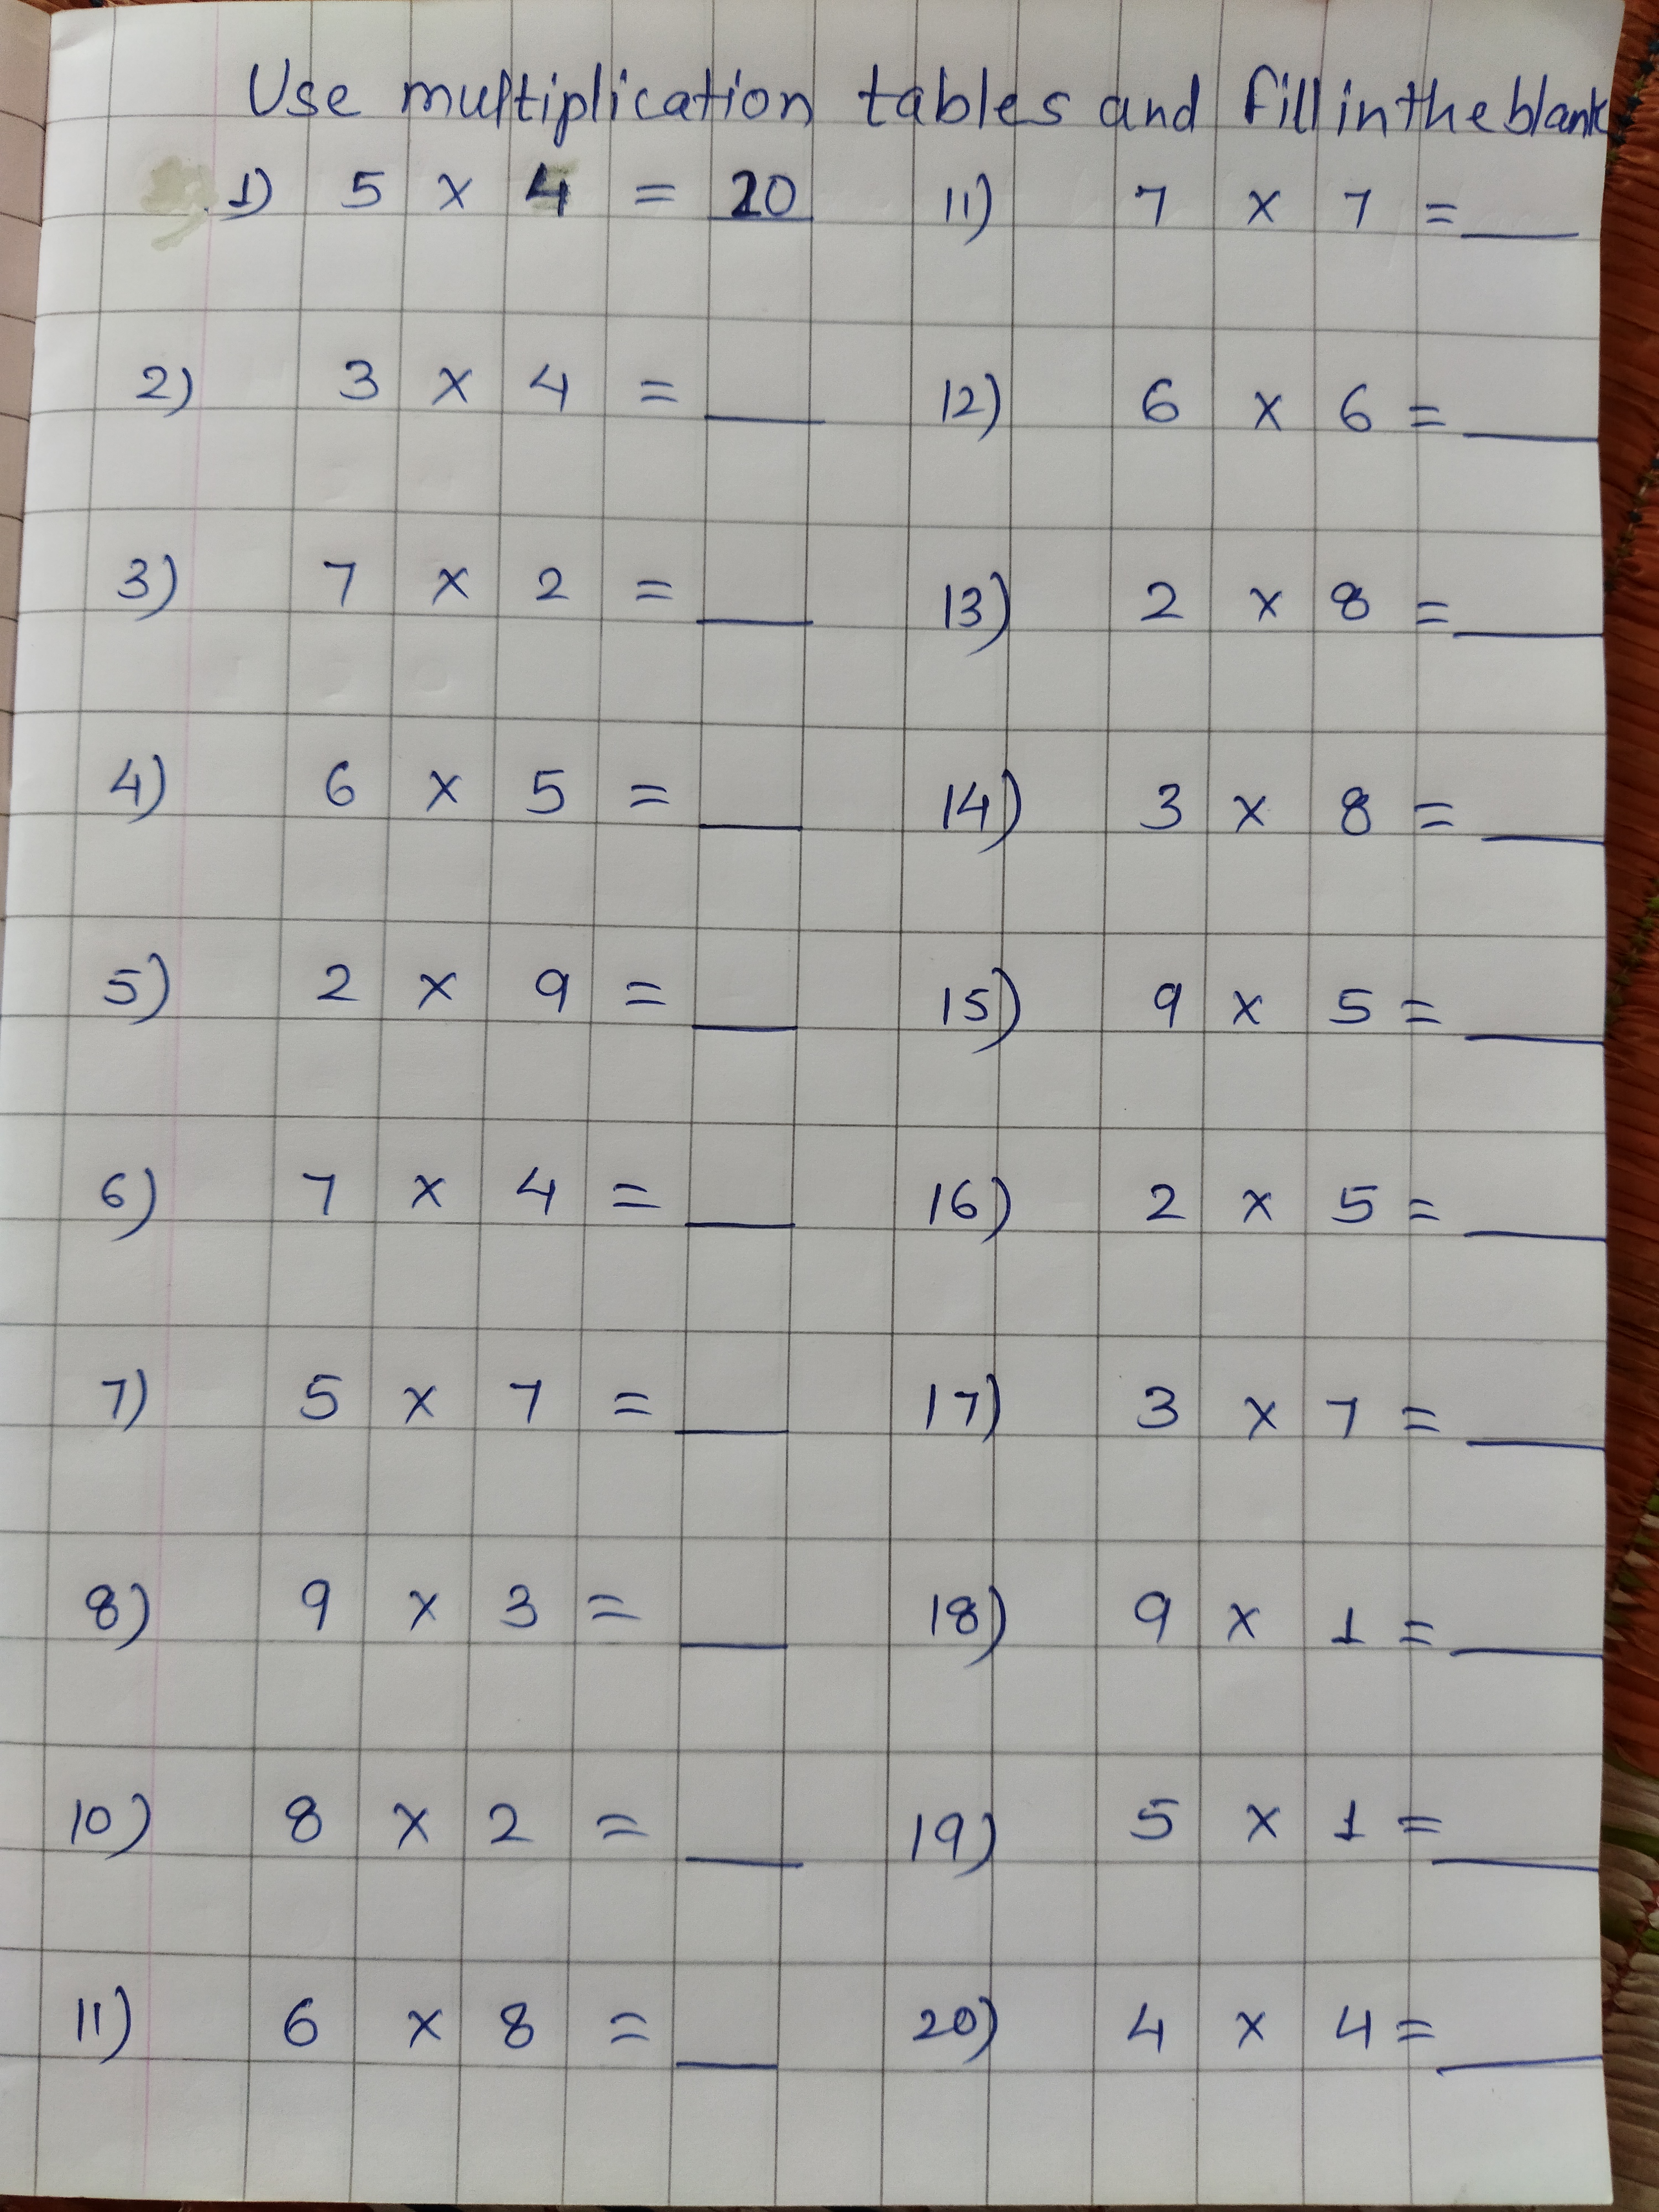 Use multiplication tables and fill in the blank
1) 5 x 4 = 20
2) 3 x 4 = __
3) 7 x 2 = __
4) 6 x 5 = __
5) 2 x 9 = __
6) 7 x 4 = __
7) 5 x 7 = __
8) 9 x 3 = __
10) 8 x 2 = __
11) 6 x 8 = __
11) 7 x 7 = __
12) 6 x 6 = __
13) 2 x 8 = __
14) 3 x 8 = __
15) 9 x 5 = __
16) 2 x 5 = __
17) 3 x 7 = __
18) 9 x 1 = __
19) 5 x 1 = __
20) 4 x 4 = __